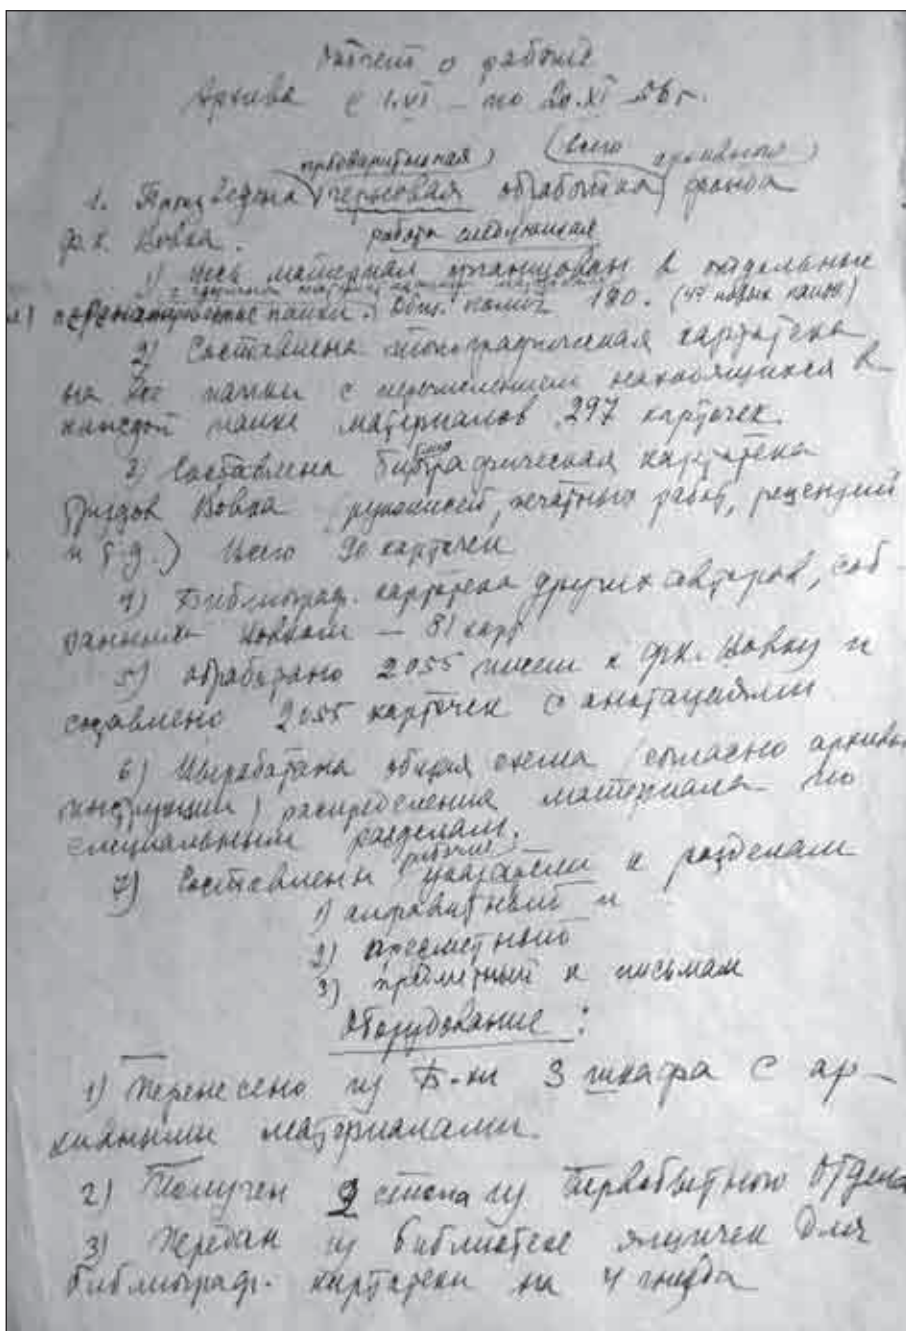 Отчет о работе
Архива с 1.VI – по 20.XI – 56 г.
предварительная) (всего архивного)
1. Произведена черновая обработка фонда
Ф. К. Вовка. работа следующая
1) Весь материал в отдельные
папки. 190. (47 новых папок)
2) Составлена топографическая картотека
на все папки с перечислением находящихся в
каждой папке материалов 297 карточек.
3) Составлена библиографическая картотека
трудов Вовка (рукописей, печатных работ, рецензий
и т.д.) Всего 90 карточек
4) Библиограф. картотека других авторов, соб-
ранных Вовком – 81 карт
5) обработано 2055 писем к Ф.К. Вовку и
составлено 2055 карточек с анотациями
6) Выработана общая схема (согласно архивн.
инструкции) распределения материала по
специальным разделам.
рабочие
7) Составлены указатели к разделам
1) алфавитный и
2) предметный
3) предметный к письмам
Оборудование:
1) Перенесено из Б-ки 3 шкафа с ар-
хивными материалами.
2) Получен 9 из Первобытного Отдела
3) Передан из библиотеки ящичек для
библиограф. картотеки на 4 гнезда